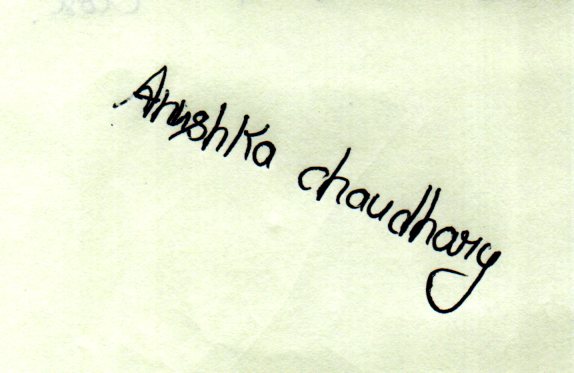 Anushka chaudhary